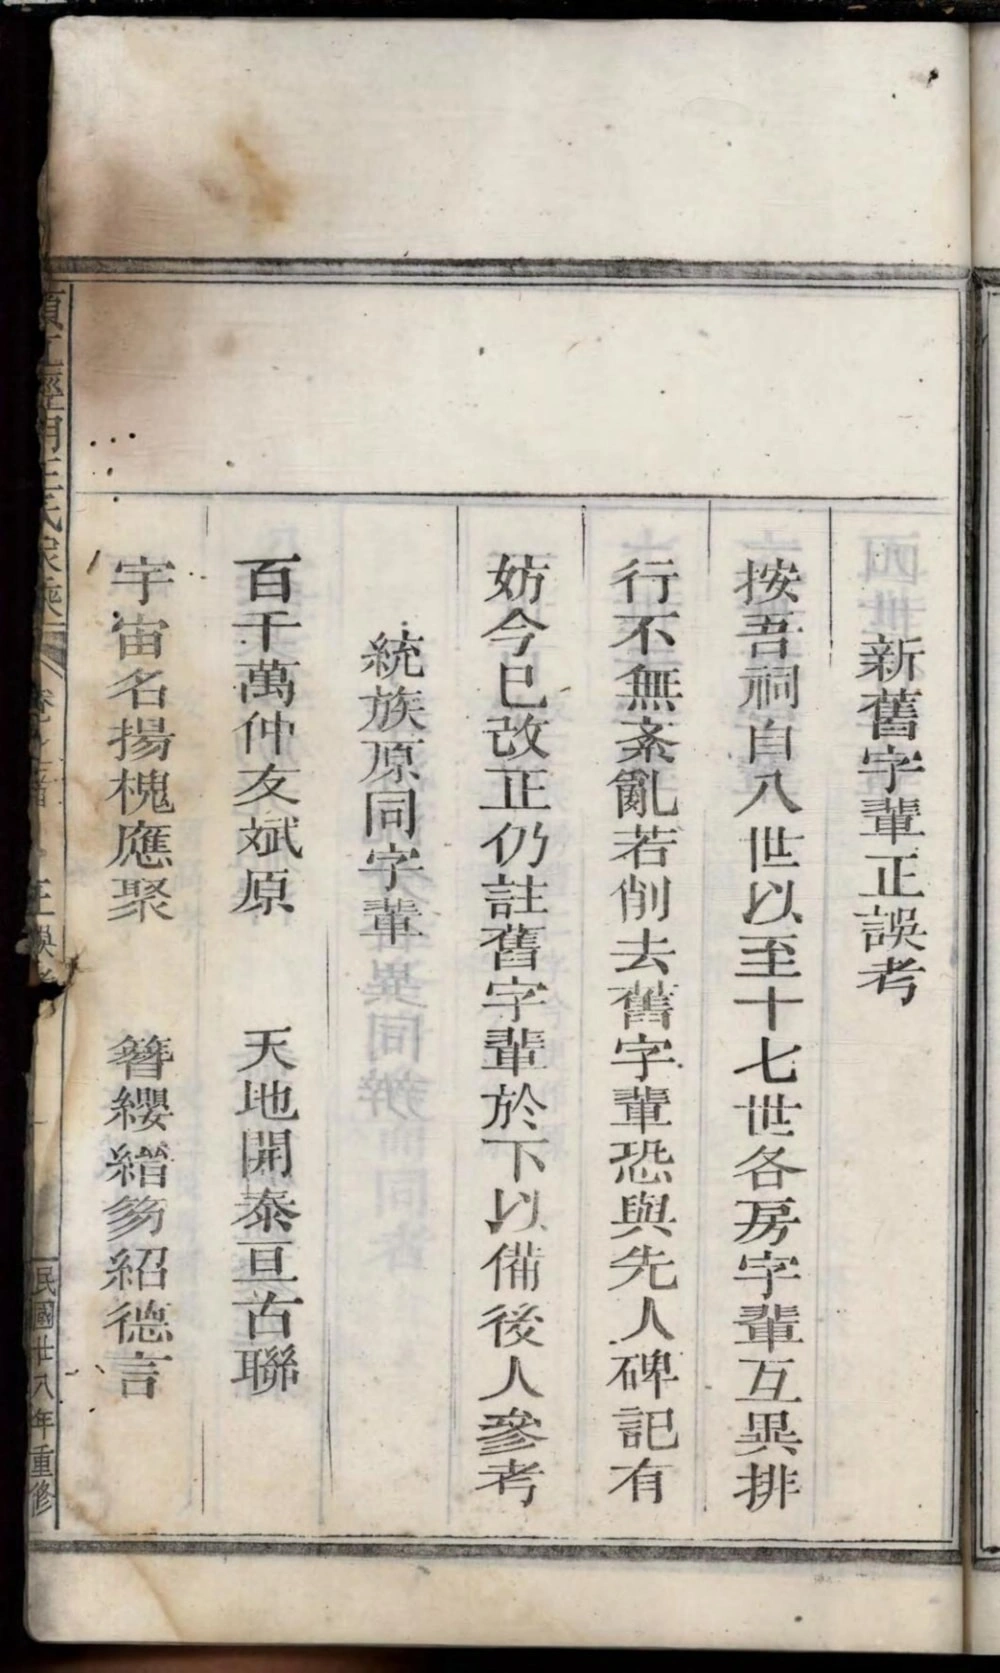 新舊字輩正誤考
按吾祠自八世以至十七世各房字輩互異排
行不無紊亂若削去舊字輩恐與先人碑記有
妨今已改正仍註舊字輩於下以備後人參考
統族原同字輩
百千萬仲友斌原　天地開泰亘古聯
宇宙名揚槐應聚　簪纓縉笏紹德言
江涇明王氏家乘　卷之首　正誤考　民國廿八年重修